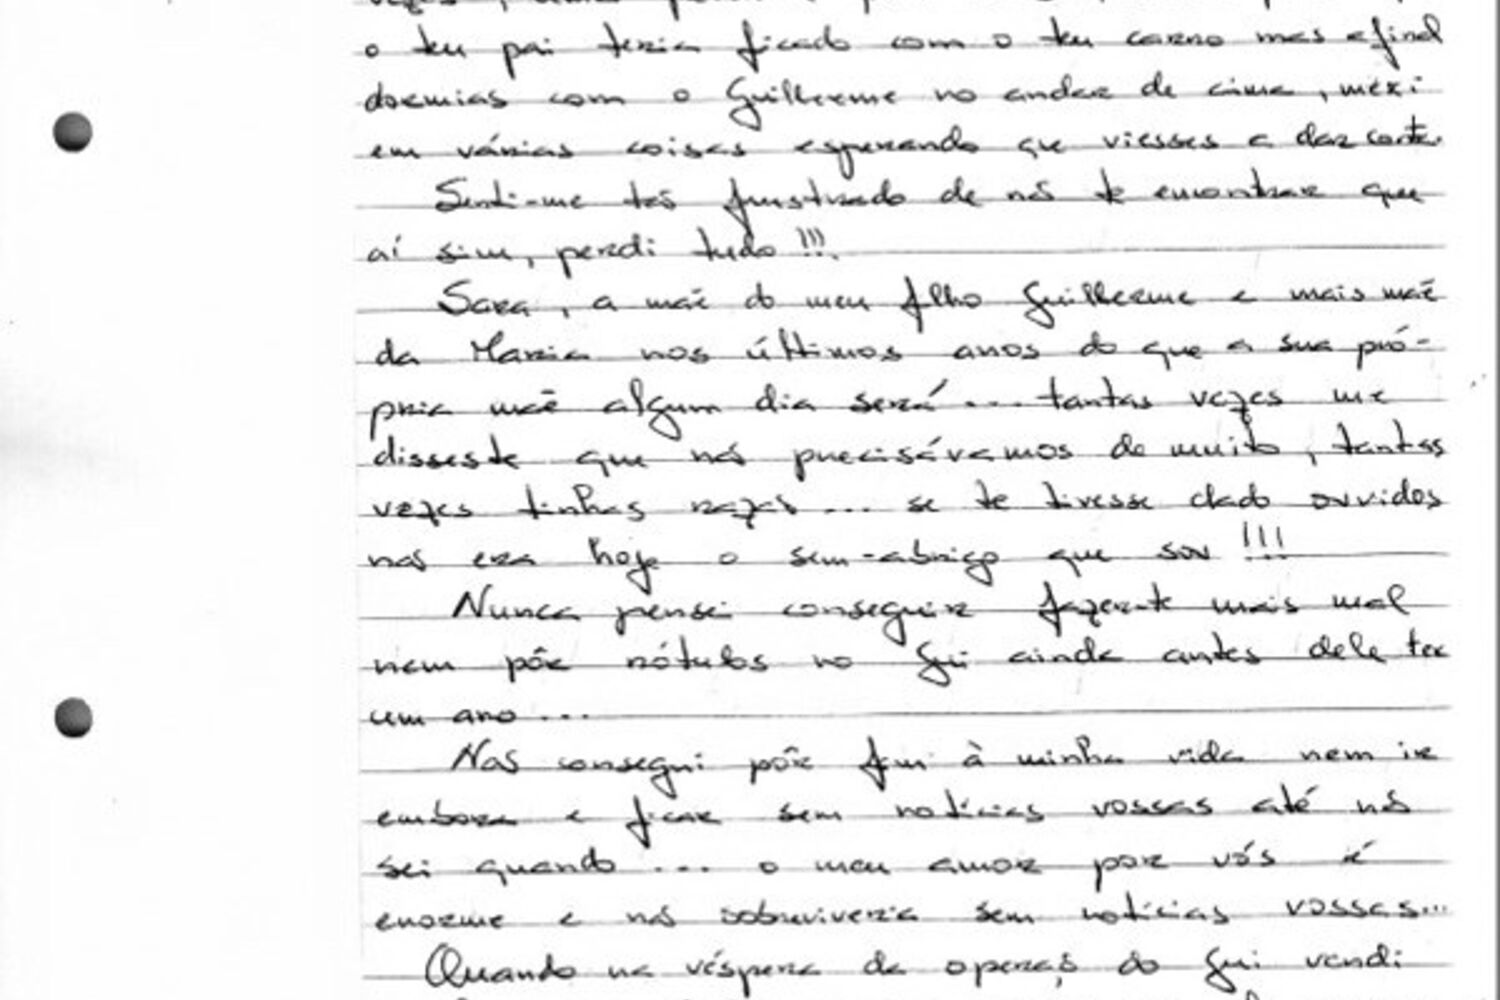 o teu pai teria ficado com o teu carro mas afinal
dormias com o Guilherme no andar de cima, mexi
em várias coisas esperando que viesses a dar conta.
Senti-me tão frustrado de não te encontrar que
aí sim, perdi tudo!!!
Sara, a mãe do meu filho Guilherme e mais mãe
da Maria nos últimos anos do que a sua pró-
pria mãe algum dia será... tantas vezes me
disseste que não precisávamos de muito, tantas
vezes tinhas razão... se te tivesse dado ouvidos
não era hoje o sem-abrigo que sou!!!
Nunca pensei conseguir fazer-te mais mal
nem pôr rótulos no Gui ainda antes dele ter
um ano...
Não consegui pôr fim à minha vida nem ir
embora e ficar sem notícias vossas até não
sei quando... o meu amor por vós é
enorme e não sobreviveria sem notícias vossas...
Quando na véspera da operação do Gui vendi